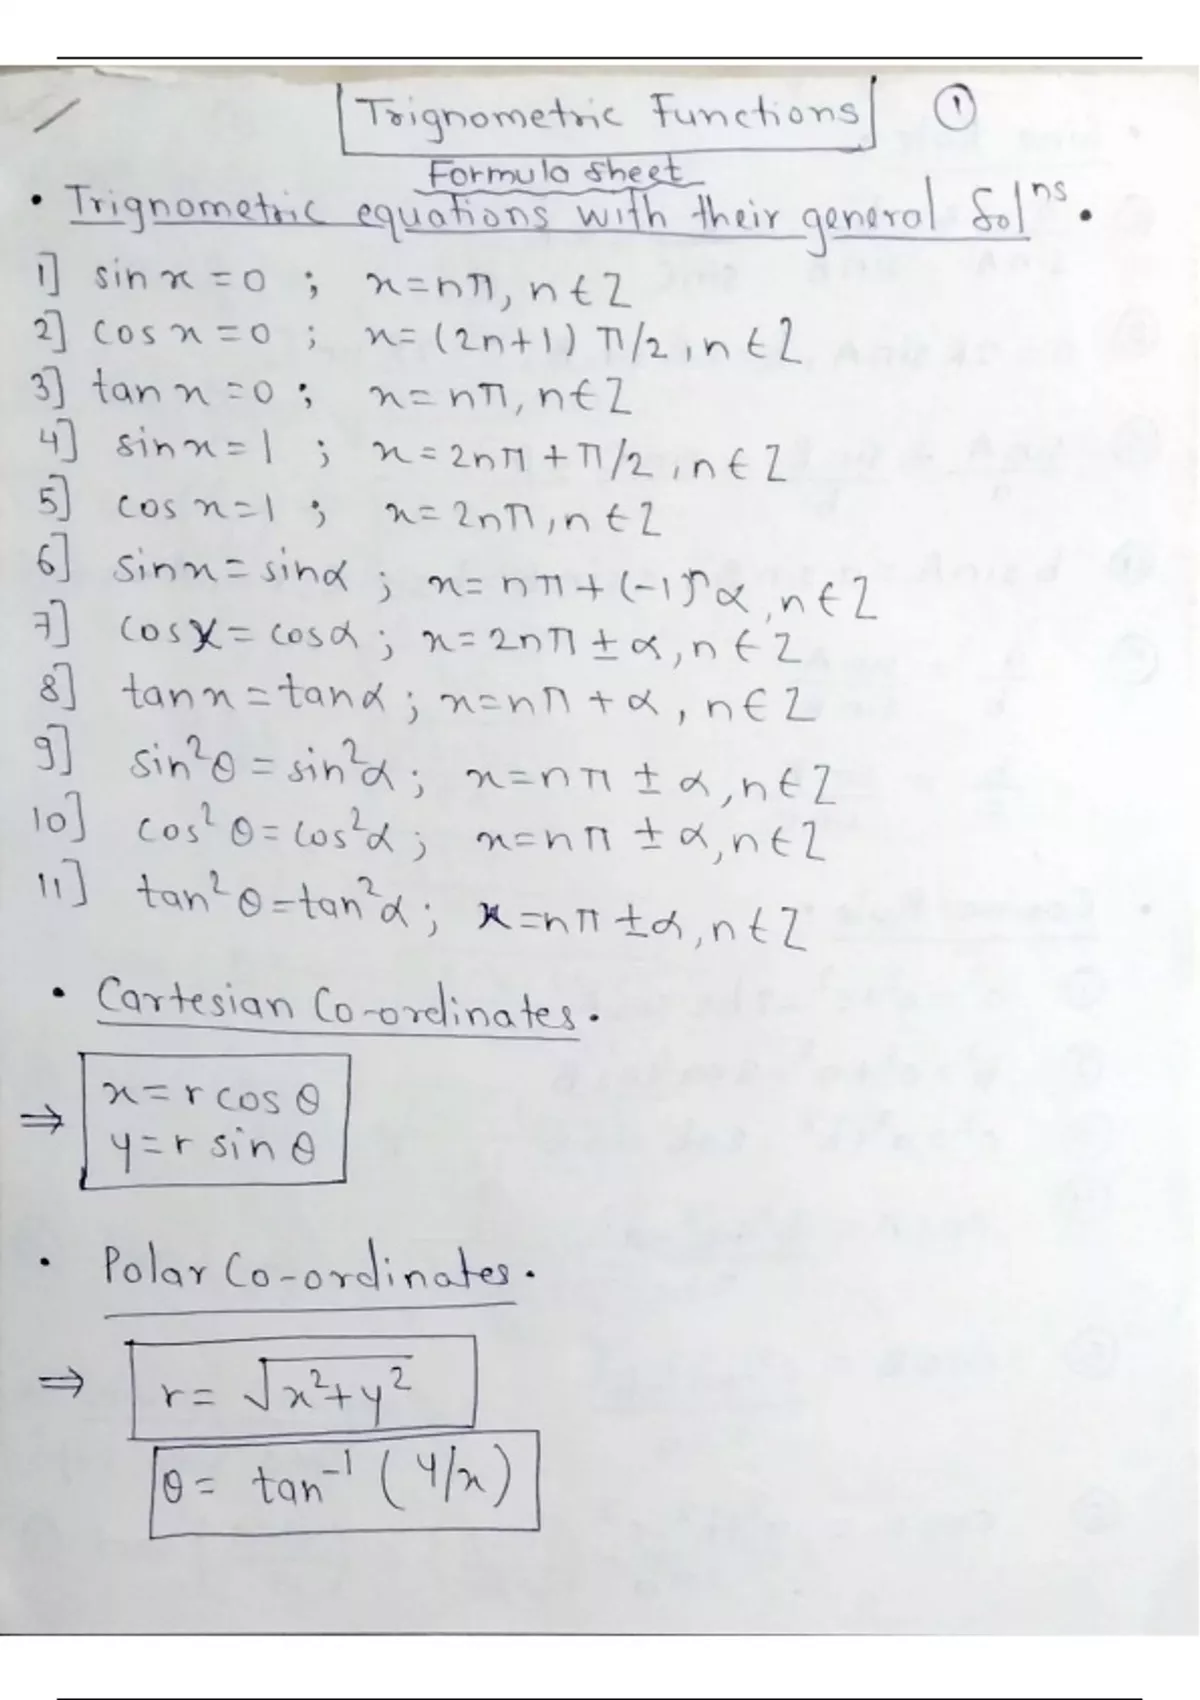 Trignometric Functions ①
Formula Sheet
• Trignometric equations with their general Solⁿˢ.
1] sin x = 0 ; x = nπ, n ∈ Z
2] cos x = 0 ; x = (2n+1) π/2, n ∈ Z
3] tan x = 0 ; x = nπ, n ∈ Z
4] sin x = 1 ; x = 2nπ + π/2, n ∈ Z
5] cos x = 1 ; x = 2nπ, n ∈ Z
6] sin x = sin α ; x = nπ + (-1)ⁿ α, n ∈ Z
7] cos x = cos α ; x = 2nπ ± α, n ∈ Z
8] tan x = tan α ; x = nπ + α, n ∈ Z
9] sin²θ = sin²α ; x = nπ ± α, n ∈ Z
10] cos²θ = cos²α ; x = nπ ± α, n ∈ Z
11] tan²θ = tan²α ; x = nπ ± α, n ∈ Z
• Cartesian Co-ordinates.
⇒ x = r cos θ
y = r sin θ
• Polar Co-ordinates.
⇒ r = √x²+y²
θ = tan⁻¹ (y/x)